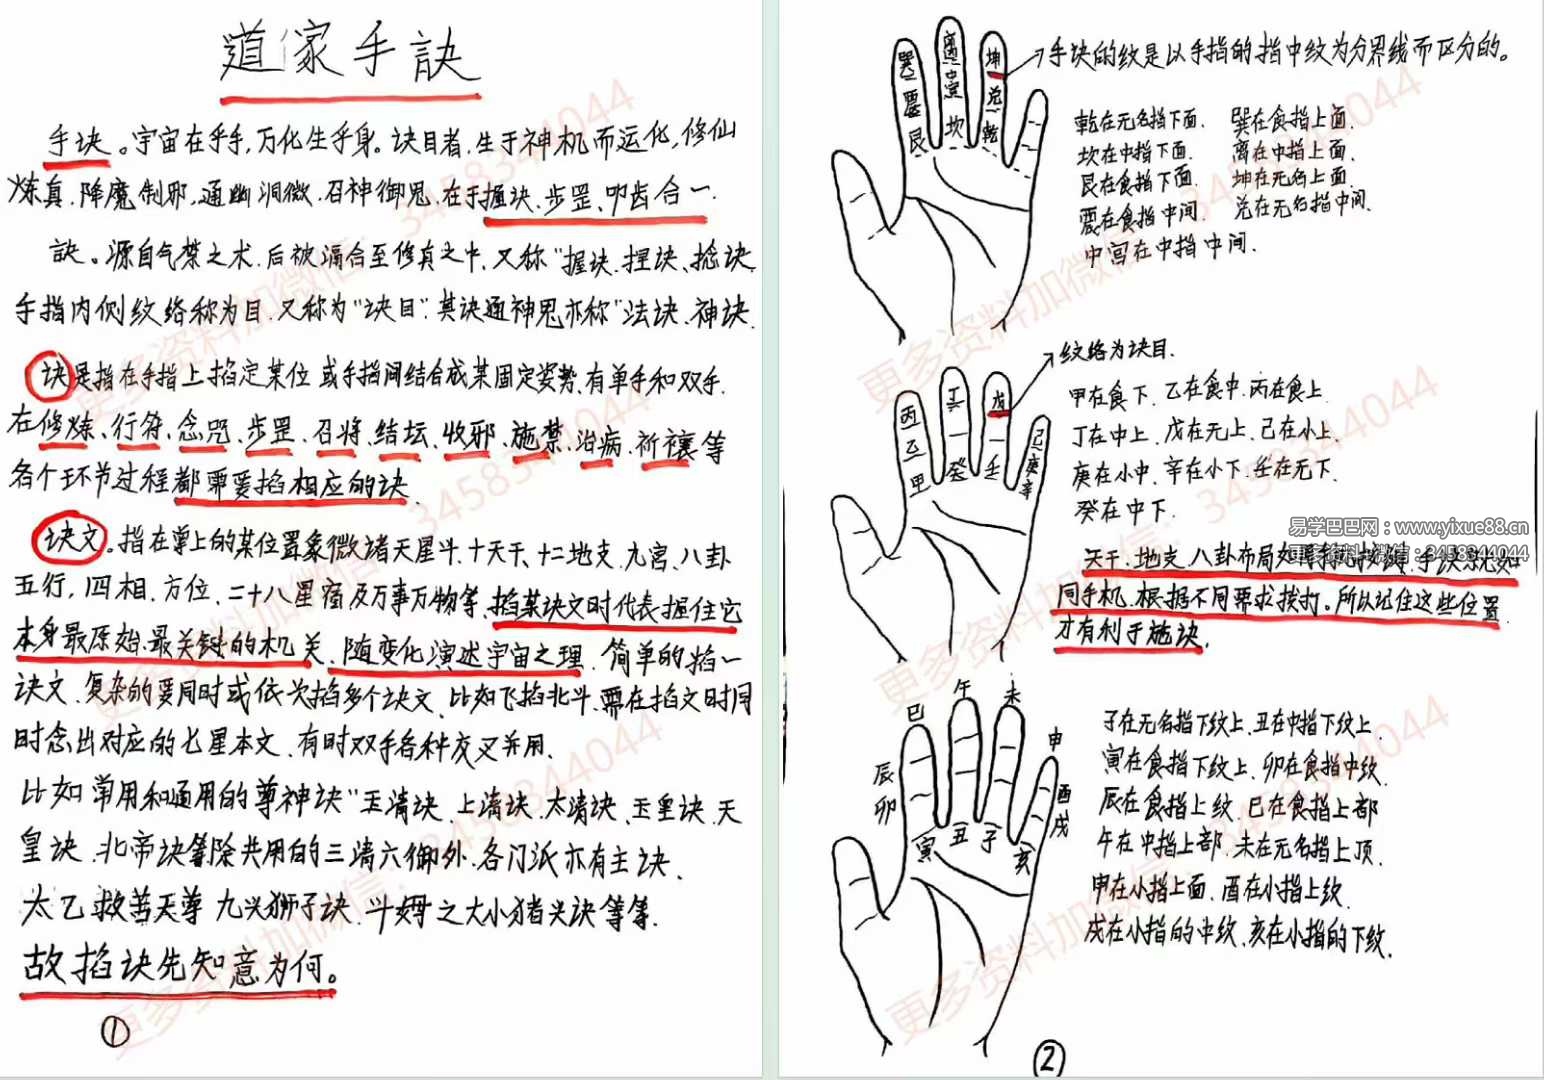 道家手訣
手诀。宇宙在乎手,万化生乎身。诀目者,生于神机而运化,修仙
炼真.降魔制邪,通幽洞微.召神御鬼.在于握诀.步罡.叩齿合一.
訣。源自气禁之术.后被融合至修真之中,又称"握诀.捏诀、捻诀.
手指内侧纹络称为目.又称为"诀目".其诀通神鬼亦称"法诀、神诀.
诀是指在手指上掐定某位或手指间结合成某固定姿势.有单手和双手.
在修炼、行符、念咒、步罡、召将、结坛、收邪、施禁、治病、祈禳等
各个环节过程都需要掐相应的诀.
诀文。指在掌上的某位置象徵诸天星斗.十天干、十二地支.九宫、八卦
五行,四相.方位、二十八星宿及万事万物等、掐某诀文时代表握住它
本身最原始、最关键的机关、随变化演述宇宙之理.简单的掐一
诀文.复杂的要同时或依次掐多个诀文、比如飞掐北斗.需在掐文时同
时念出对应的七星本文、有时双手各种交叉并用.
比如常用和通用的尊神诀"玉清诀.上清诀.太清诀、玉皇诀、天
皇诀.北帝诀等除共用的三清六御外.各门派亦有主诀.
太乙救苦天尊九头狮子诀.斗姆之大小猪头诀等等.
故掐诀先知意为何。
①
巽 離 坤
震 中宫 兑
艮 坎 乾
手诀的纹是以手指的指中纹为分界线而区分的。
乾在无名指下面. 巽在食指上面.
坎在中指下面. 离在中指上面.
艮在食指下面. 坤在无名上面.
震在食指中间. 兑在无名指中间.
中宫在中指中间.
纹络为诀目.
丙 丁 戊 己
乙 庚
甲 癸 壬 辛
甲在食下.乙在食中.丙在食上.
丁在中上.戊在无上.己在小上.
庚在小中.辛在小下.壬在无下.
癸在中下.
易学巴巴网:www.yixue88.cn
更多资料+微信:3458344044
天干.地支.八卦布局如
同手机.根据不同需求拨打。所以记住这些位置
才有利于施诀.
巳 午 未 申
辰 酉
卯 戌
寅 丑 子 亥
子在无名指下纹上.丑在中指下纹上.
寅在食指下纹上.卯在食指中纹.
辰在食指上纹.巳在食指上部
午在中指上部.未在无名指上顶.
申在小指上面.酉在小指上纹.
戌在小指的中纹.亥在小指的下纹.
②
更多资料加微信：3458344044